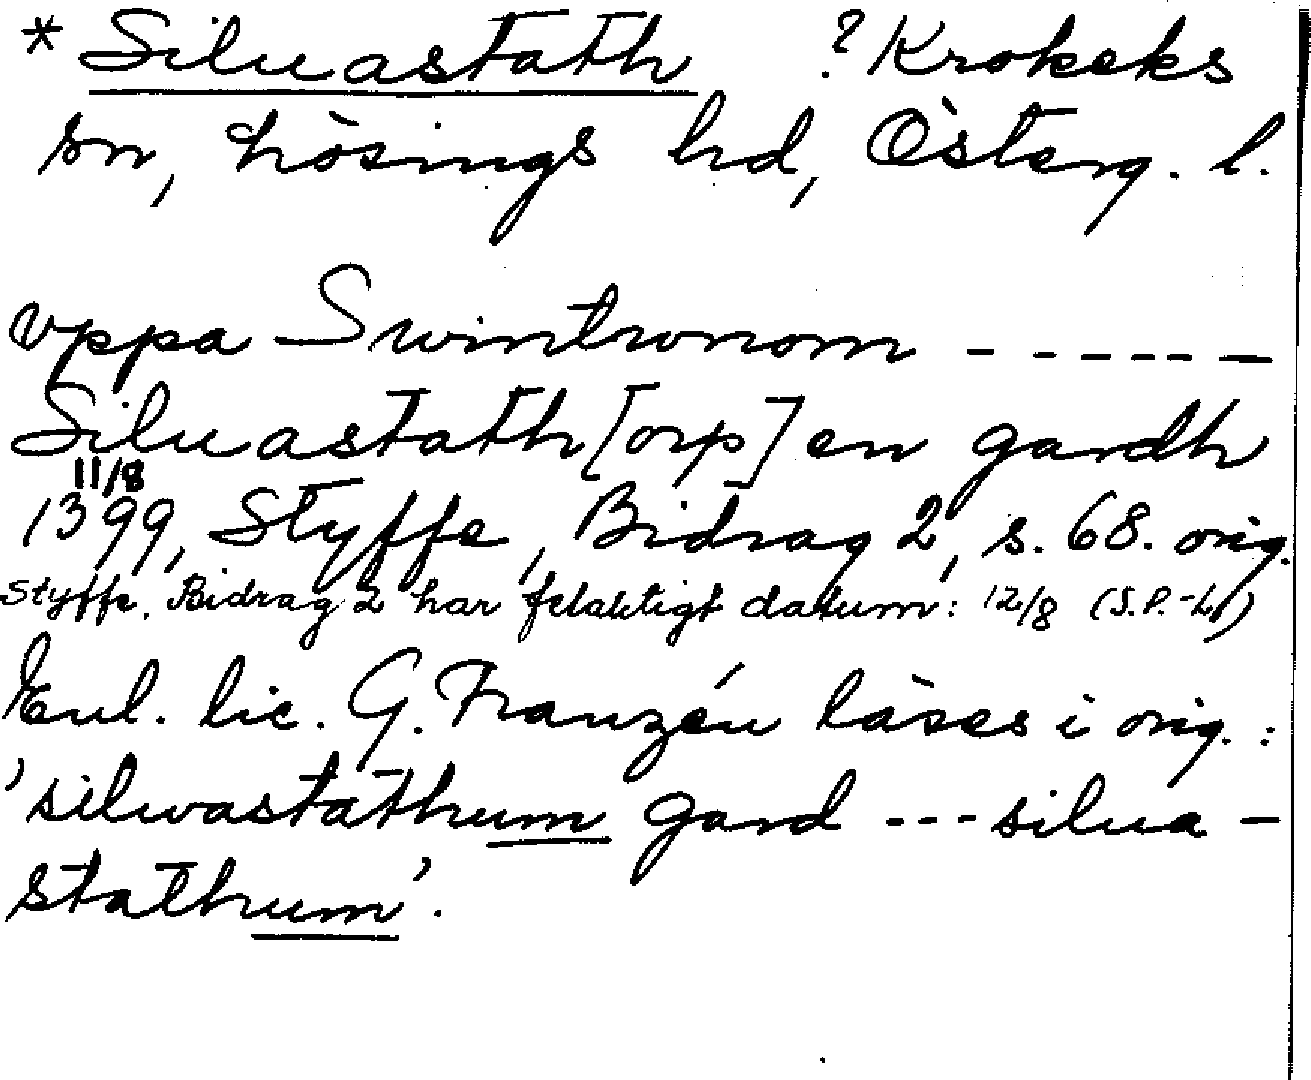 * Siluastath ? Krokeks
sn, Lösings hd, Österg. l.
vppa Swintwnom - - - - - -
Siluastath[orp] en gardh
11/8
1399, Styffe, Bidrag 2, s. 68. orig.
Styffe, Bidrag 2 har felaktigt datum: 12/8 (S.P.-L.)
Enl. lic. G. Franzén läses i orig.:
'silwastathum gard - - - silua-
stathum'.